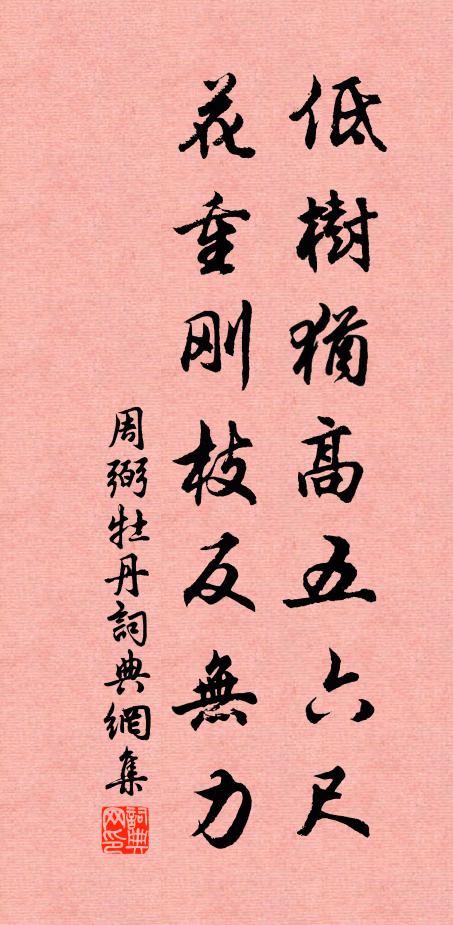 低樹猶高五六尺
花重刚枝反無力
周弼牡丹詞典網集
詞典网印